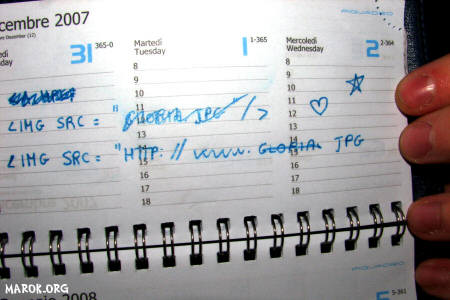 cembre 2007
PIQUADRO
edì
31
365-0
Martedì
Tuesday
1
1-365
Mercoledì
Wednesday
2
2-364
8
9
10
11
12
13
14
15
16
17
18
8
9
10
11
12
13
14
15
16
17
18
LIMG SRC = "GLORIA JPG" />
LIMG SRC = "HTTP://www. GLORIA JPG
2008
PIQUADRO
5-361
MAROK.ORG